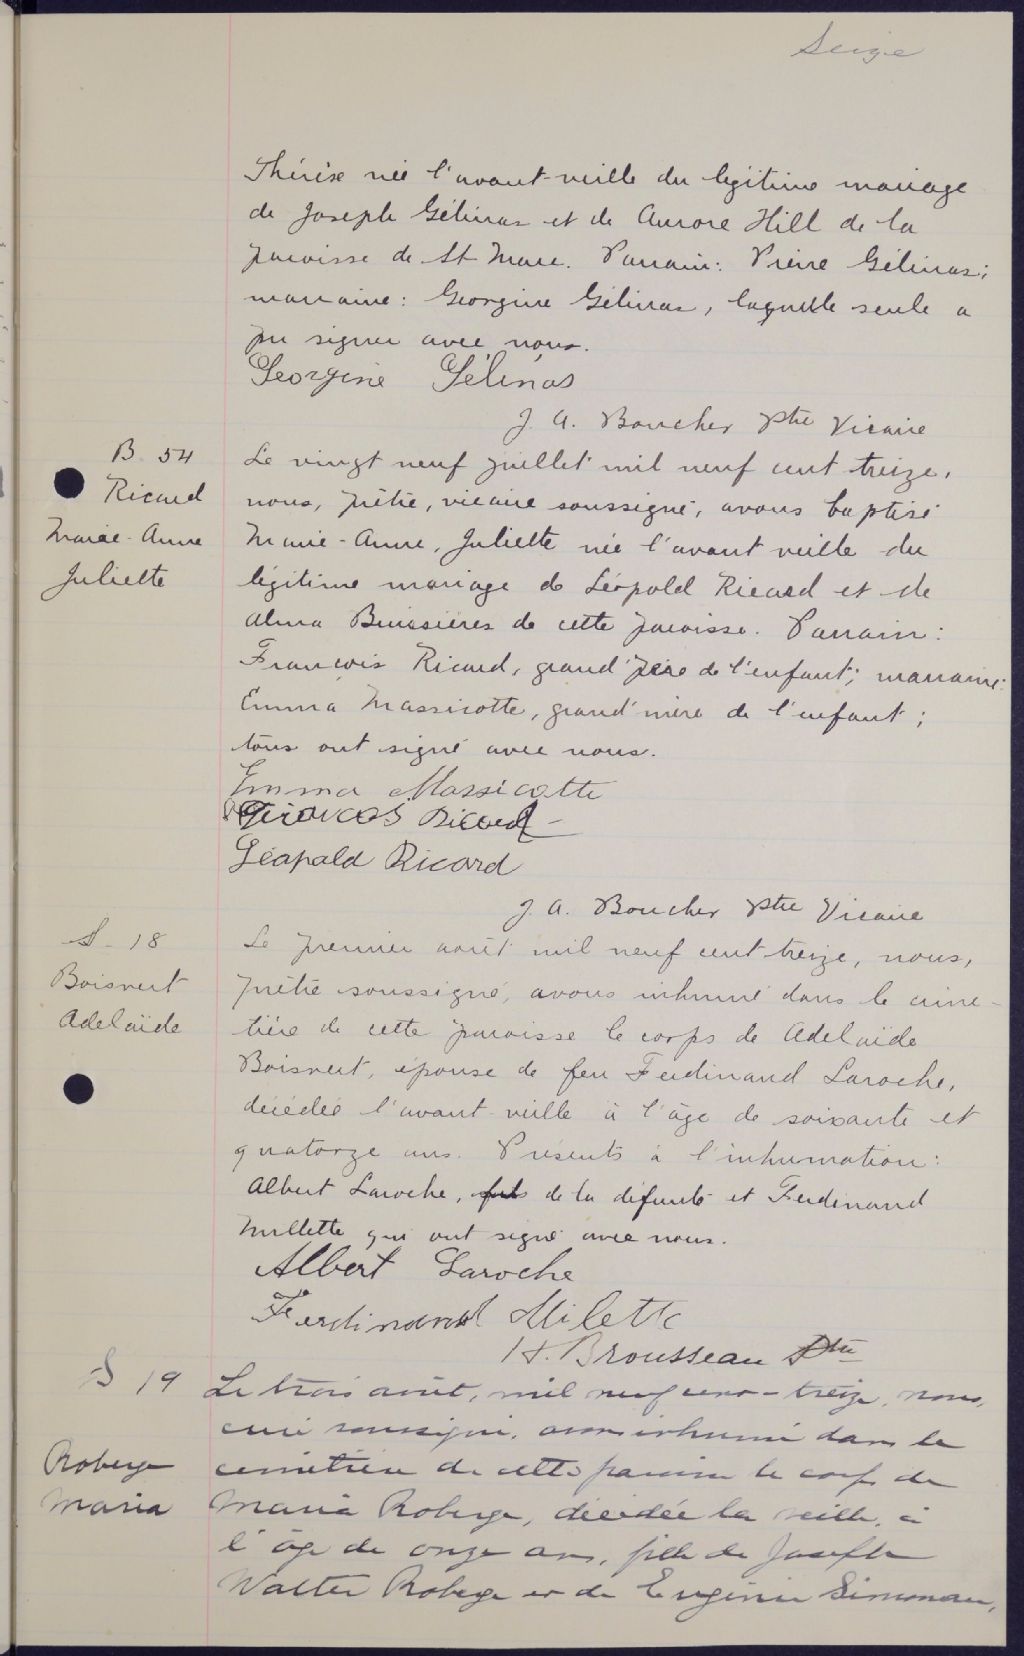 Seize
Thérèse née l'avant-veille du légitime mariage
de Joseph Gélinas et de Aurore Hill de la
paroisse de St Marc. Parrain: Pierre Gélinas;
marraine: Georgine Gélinas, laquelle seule a
pu signer avec nous.
Georgine Gélinas
J. A. Boucher Ptre Vicaire
B. 54
Ricard
Marie-Anne
Juliette
Le vingt neuf juillet mil neuf cent treize,
nous, prêtre, vicaire soussigné, avons baptisé
Marie-Anne, Juliette née l'avant veille du
légitime mariage de Léopold Ricard et de
Alma Buissières de cette paroisse. Parrain:
François Ricard, grand'père de l'enfant; marraine:
Emma Massicotte, grand'mère de l'enfant;
tous ont signé avec nous.
Emma Massicotte
Ricard
Léopold Ricard
J. A. Boucher Ptre Vicaire
S. 18
Boisvert
Adelaïde
Le premier août mil neuf cent treize, nous,
prêtre soussigné, avons inhumé dans le cime-
tière de cette paroisse le corps de Adelaïde
Boisvert, épouse de feu Ferdinand Laroche,
décédée l'avant-veille à l'âge de soixante et
quatorze ans. Présents à l'inhumation:
Albert Laroche, fils de la défunte et Ferdinand
Millette qui ont signé avec nous.
Albert Laroche
Ferdinand Milette
H. Brousseau Ptre
S 19
Roberge
Maria
Le trois août, mil neuf cent-treize, nous,
curé soussigné, avons inhumé dans le
cimetière de cette paroisse le corps de
Maria Roberge, décédée la veille, à
l'âge de onze ans, fille de Joseph
Walter Roberge et de Eugénie Simoneau,